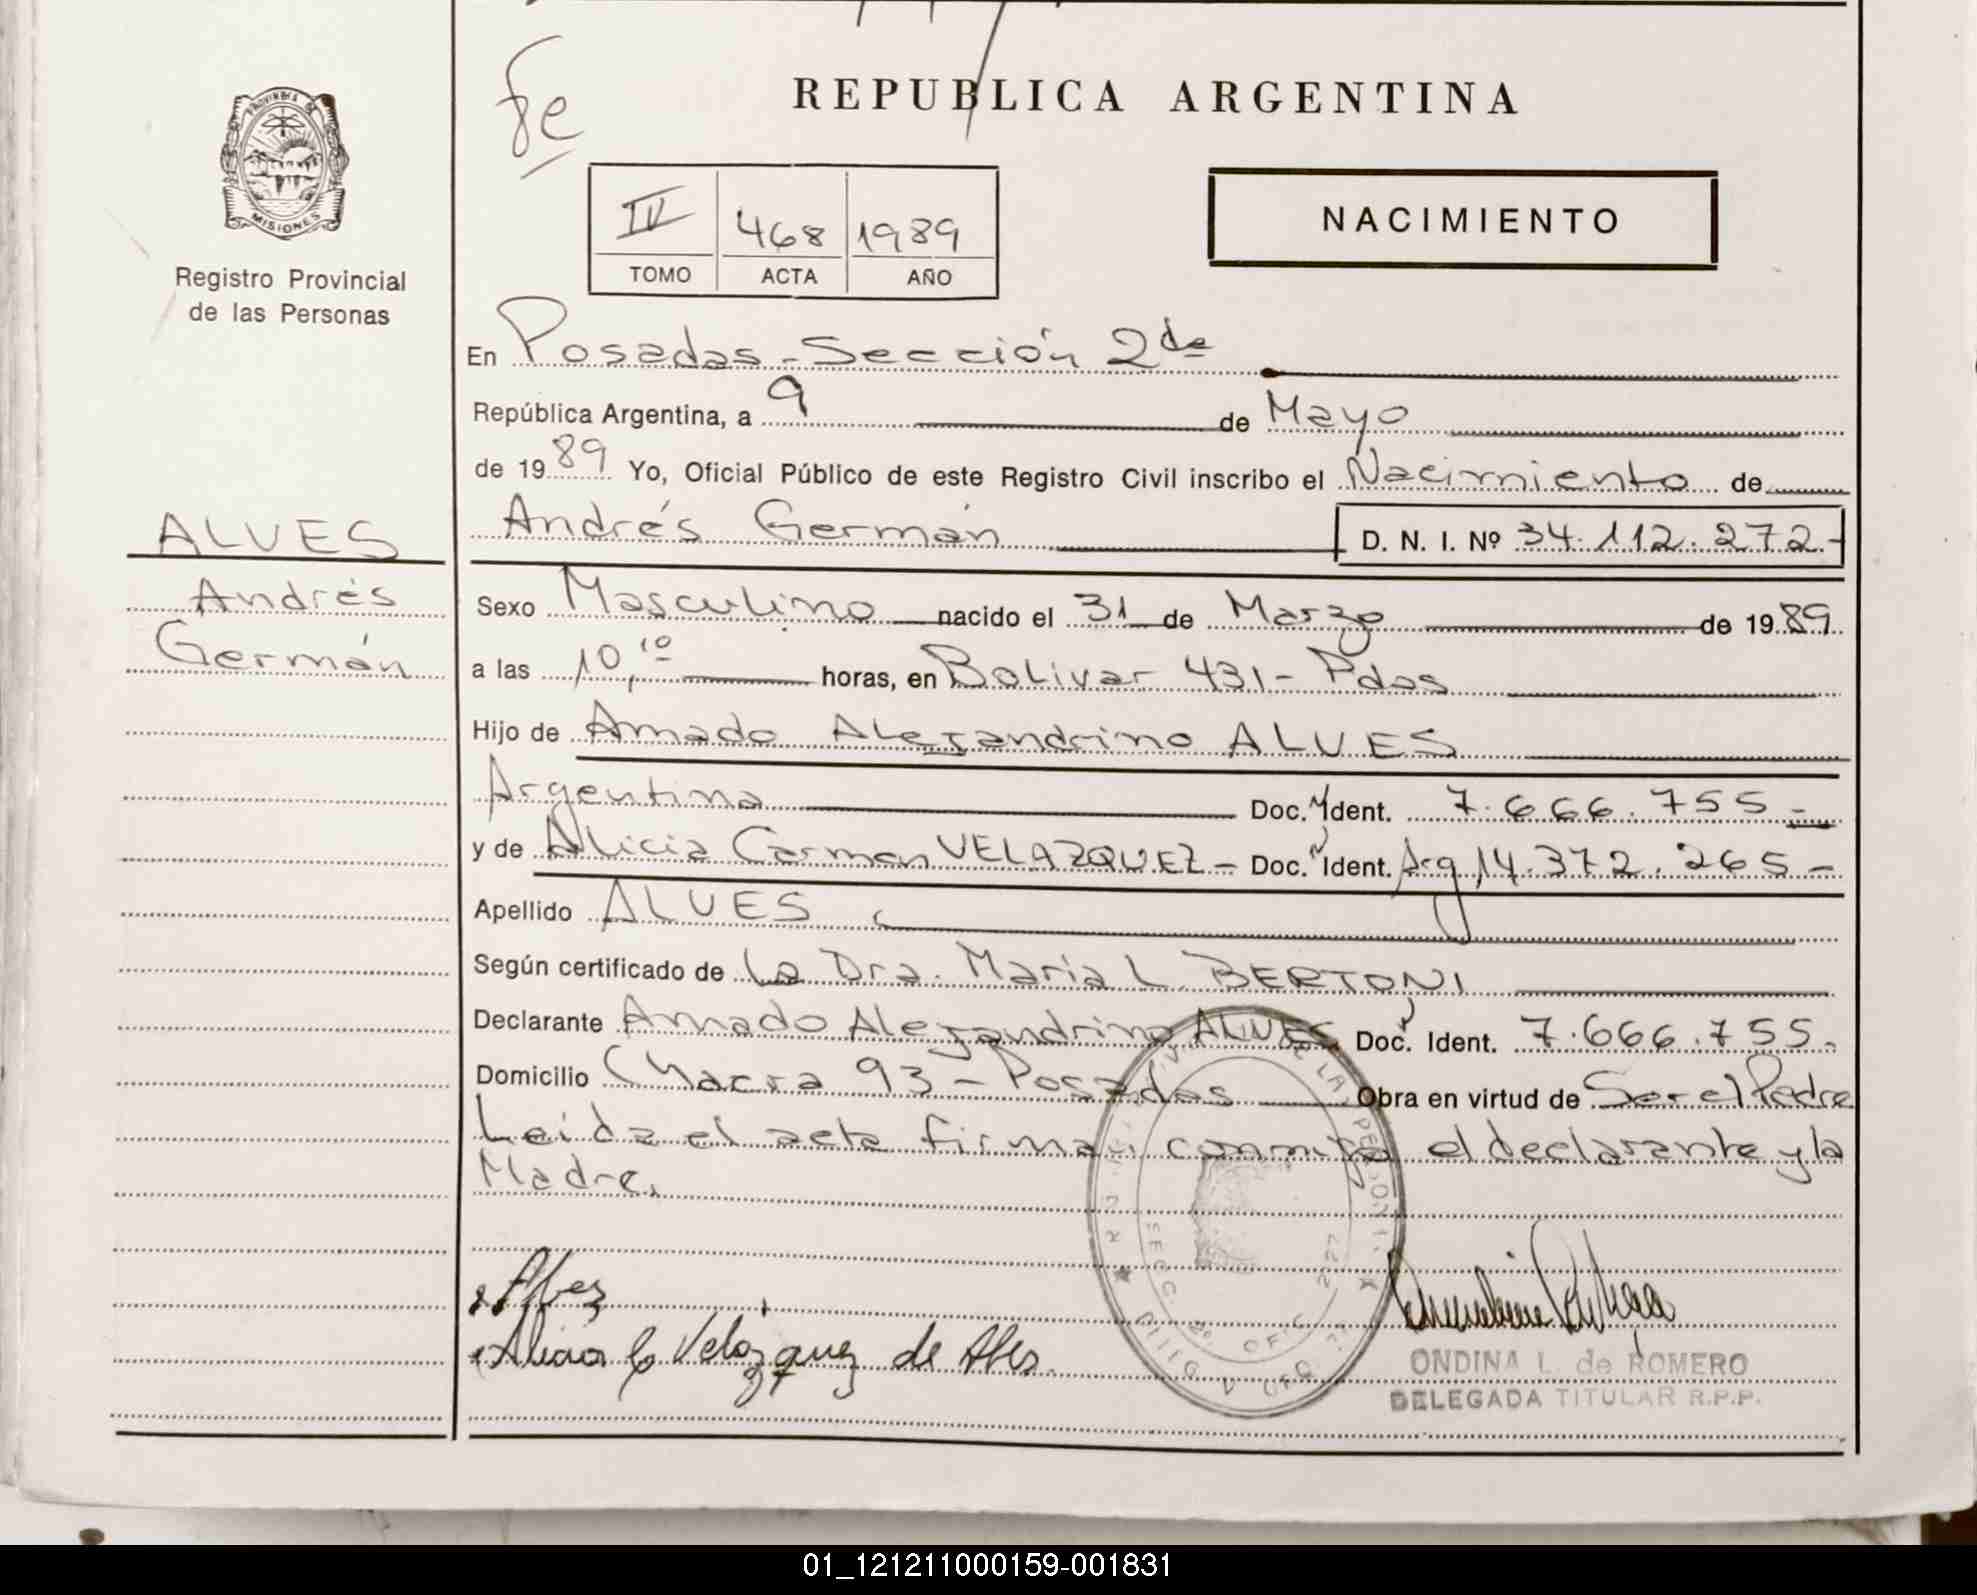 fe
REPUBLICA ARGENTINA
PROVINCIA DE
MISIONES
Registro Provincial
de las Personas
IV 468 1989
TOMO ACTA AÑO
NACIMIENTO
En Posadas - Sección 2da
República Argentina, a 9 de Mayo
de 1989 Yo, Oficial Público de este Registro Civil inscribo el Nacimiento de
Andrés Germán D. N. I. Nº 34.112.272-
ALVES
Andrés
Germán
Sexo Masculino nacido el 31 de Marzo de 1989
a las 10,10 horas, en Bolivar 431 - Pdas
Hijo de Amado Alejandrino ALVES
Argentina Doc. Ident. 7.666.755 -
y de Alicia Carmen VELAZQUEZ - Doc. Ident. Arg 14.372.265 -
Apellido ALVES
Según certificado de La Dra. María L. BERTONI
Declarante Amado Alejandrino ALVES Doc. Ident. 7.666.755 -
Domicilio Chacra 93 - Posadas Obra en virtud de Ser el Padre
Leída el acta firman conmigo el declarante y la
Madre.
Alves
Alicia C Velázquez de Alves
ONDINA L. de ROMERO
DELEGADA TITULAR R.P.P.
01_121211000159-001831